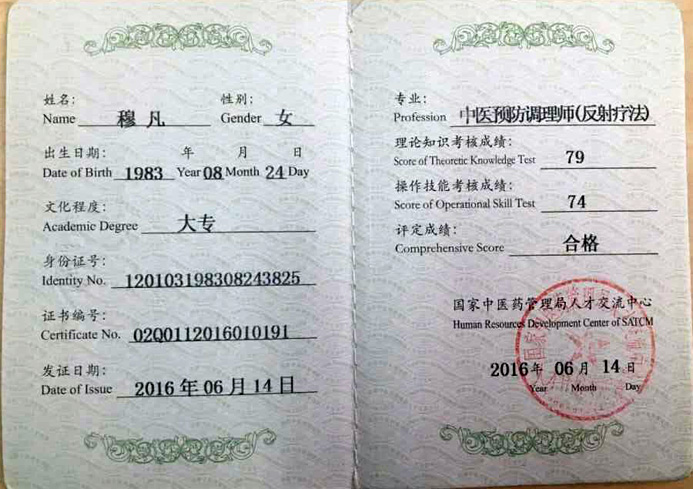 姓名： 性别：
Name 穆 凡 Gender 女
出生日期： 年 月 日
Date of Birth 1983 Year 08 Month 24 Day
文化程度：
Academic Degree 大专
身份证号：
Identity No. 120103198308243825
证书编号：
Certificate No. 02Q0112016010191
发证日期：
Date of Issue 2016 年 06 月 14 日
专业：
Profession 中医预防调理师(反射疗法)
理论知识考核成绩：
Score of Theoretic Knowledge Test 79
操作技能考核成绩：
Score of Operational Skill Test 74
评定成绩：
Comprehensive Score 合格
国家中医药管理局人才交流中心
Human Resources Development Center of SATCM
2016 年 06 月 14 日
Year Month Day